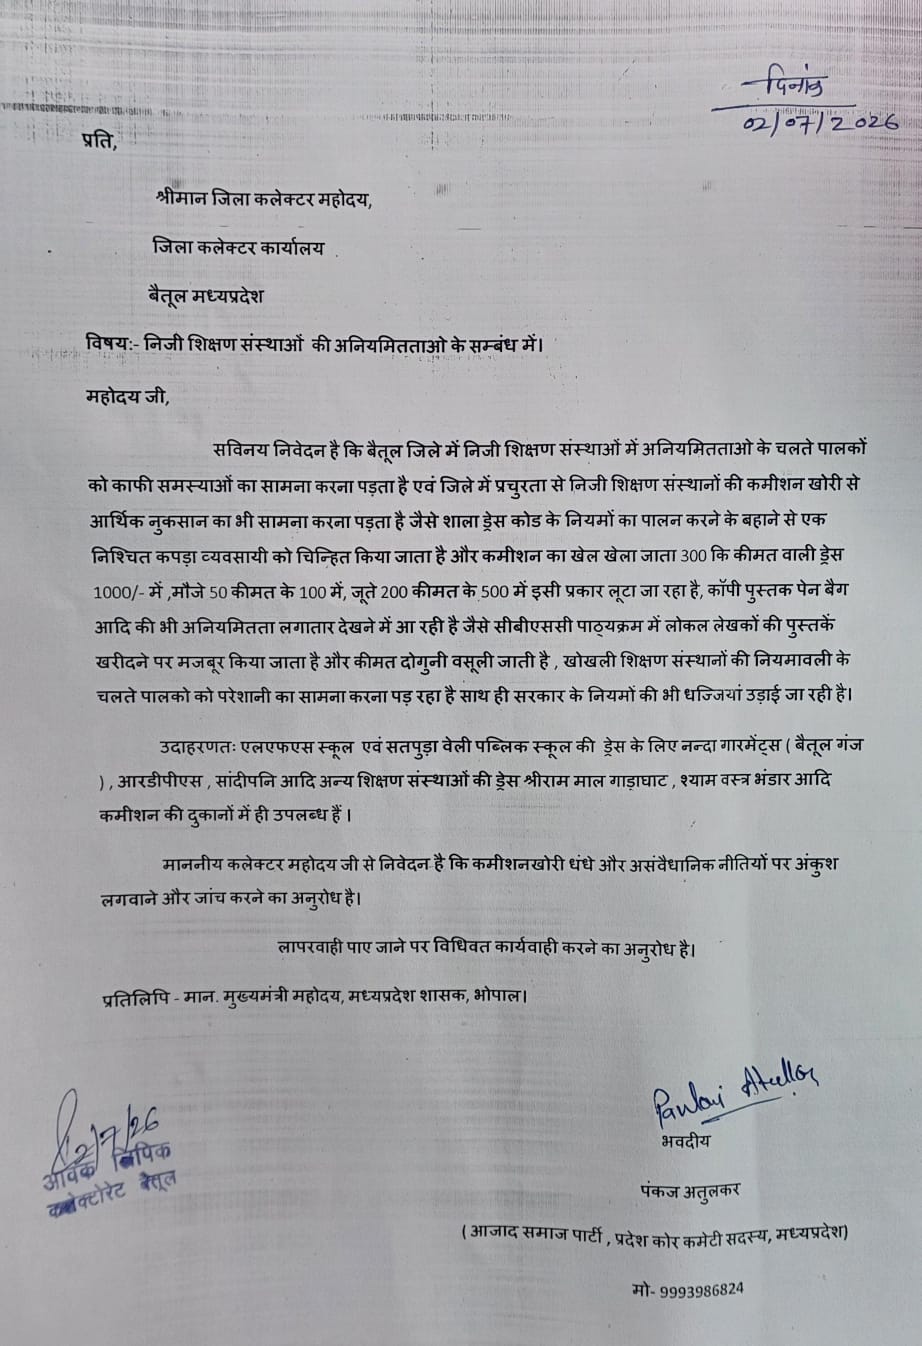 दिनांक
02/07/2026
प्रति,
श्रीमान जिला कलेक्टर महोदय,
जिला कलेक्टर कार्यालय .
बैतूल मध्यप्रदेश
विषय:- निजी शिक्षण संस्थाओं की अनियमितताओ के सम्बंध में।
महोदय जी,
सविनय निवेदन है कि बैतूल जिले में निजी शिक्षण संस्थाओं में अनियमितताओ के चलते पालकों
को काफी समस्याओं का सामना करना पड़ता है एवं जिले में प्रचुरता से निजी शिक्षण संस्थानों की कमीशन खोरी से
आर्थिक नुकसान का भी सामना करना पड़ता है जैसे शाला ड्रेस कोड के नियमों का पालन करने के बहाने से एक
निश्चित कपड़ा व्यवसायी को चिन्हित किया जाता है और कमीशन का खेल खेला जाता 300 कि कीमत वाली ड्रेस
1000/- में ,मौजे 50 कीमत के 100 में, जूते 200 कीमत के 500 में इसी प्रकार लूटा जा रहा है, कॉपी पुस्तक पेन बैग
आदि की भी अनियमितता लगातार देखने में आ रही है जैसे सीबीएससी पाठ्यक्रम में लोकल लेखकों की पुस्तकें
खरीदने पर मजबूर किया जाता है और कीमत दोगुनी वसूली जाती है , खोखली शिक्षण संस्थानों की नियमावली के
चलते पालको को परेशानी का सामना करना पड़ रहा है साथ ही सरकार के नियमों की भी धज्जियां उड़ाई जा रही है।
उदाहरणतः एलएफएस स्कूल एवं सतपुड़ा वेली पब्लिक स्कूल की ड्रेस के लिए नन्दा गारमेंट्स ( बैतूल गंज
) , आरडीपीएस , सांदीपनि आदि अन्य शिक्षण संस्थाओं की ड्रेस श्रीराम माल गाड़ाघाट , श्याम वस्त्र भंडार आदि
कमीशन की दुकानों में ही उपलब्ध हैं ।
माननीय कलेक्टर महोदय जी से निवेदन है कि कमीशनखोरी धंधे और असंवैधानिक नीतियों पर अंकुश
लगवाने और जांच करने का अनुरोध है।
लापरवाही पाए जाने पर विधिवत कार्यवाही करने का अनुरोध है।
प्रतिलिपि - मान. मुख्यमंत्री महोदय, मध्यप्रदेश शासक, भोपाल।
2/7/26
आवक लिपिक
कलेक्टोरेट बैतूल
भवदीय
पंकज अतुलकर
( आजाद समाज पार्टी , प्रदेश कोर कमेटी सदस्य, मध्यप्रदेश)
मो- 9993986824